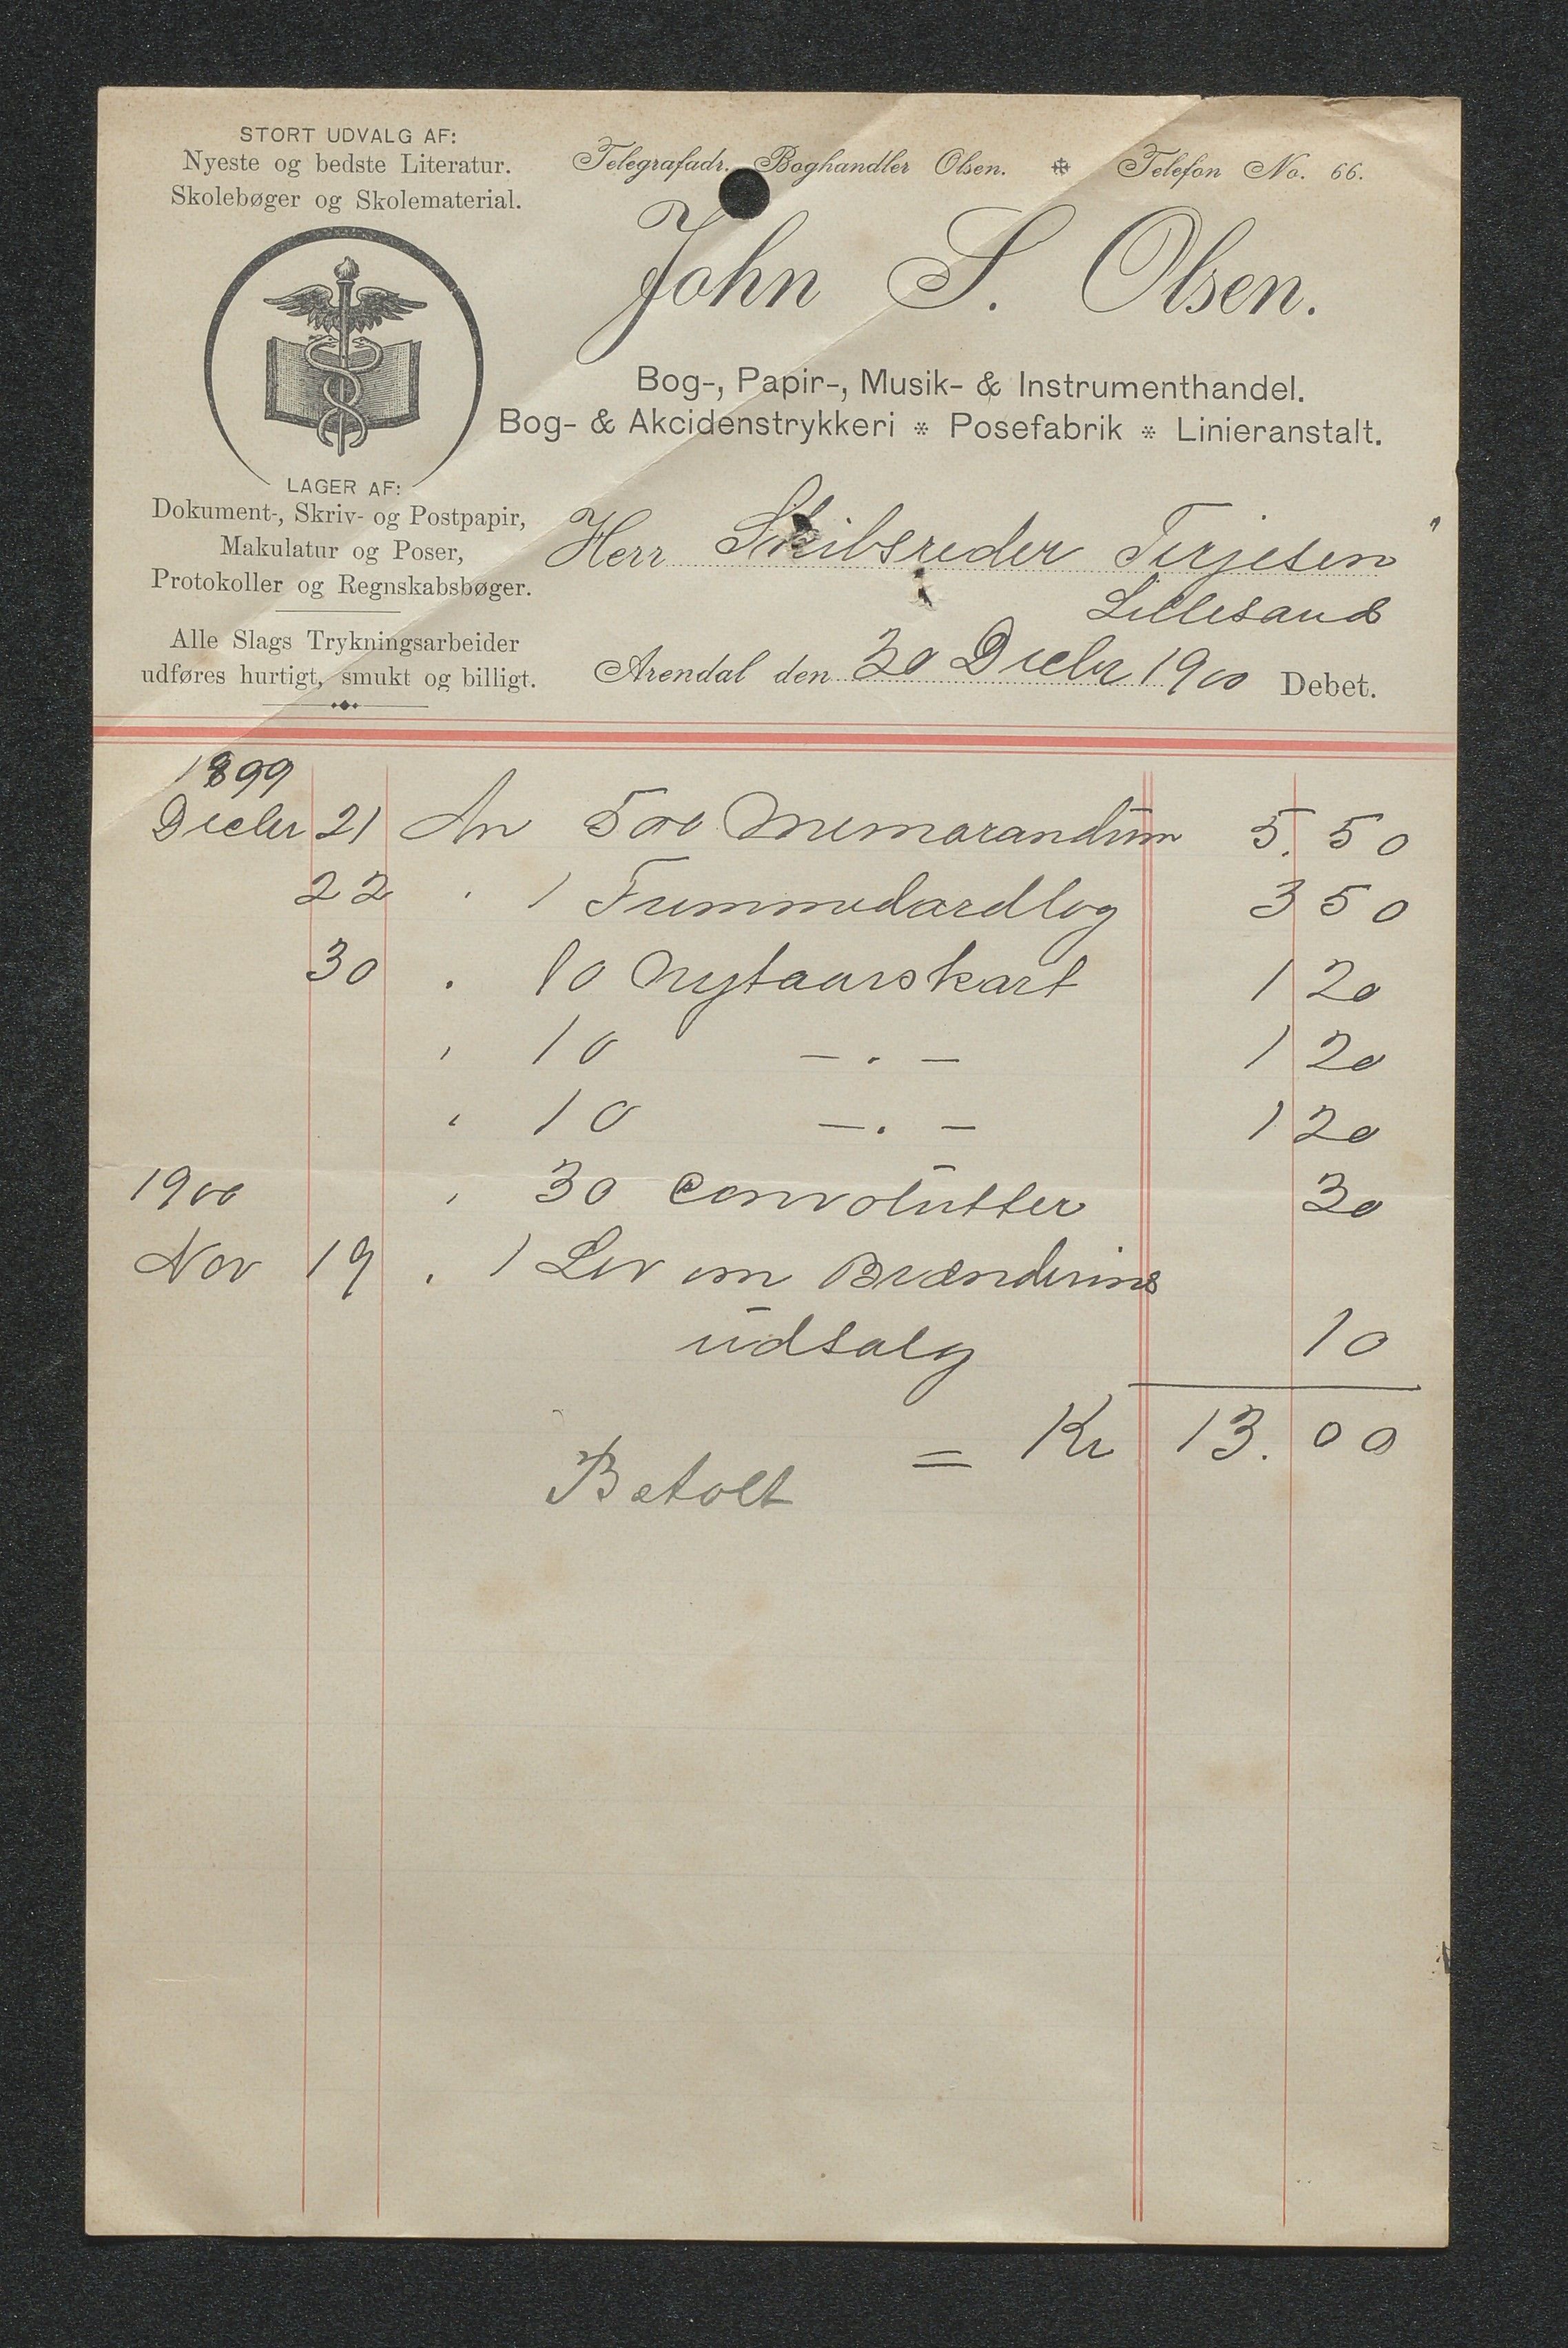 STORT UDVALG AF:
Nyeste og bedste Literatur.
Skolebøger og Skolematerial.
Telegrafadr. Boghandler Olsen. * Telefon No. 66.
John S. Olsen.
Bog-, Papir-, Musik- & Instrumenthandel.
Bog- & Akcidenstrykkeri * Posefabrik * Linieranstalt.
LAGER AF:
Dokument-, Skriv- og Postpapir,
Makulatur og Poser,
Protokoller og Regnskabsbøger.
Alle Slags Trykningsarbeider
udføres hurtigt, smukt og billigt.
Herr Skibsreder Terjesen
Lillesand
Arendal den 30 Decbr 1900 Debet.
1899
Decbr 21 An 500 Memorandum 5.50
22 " 1 3 50
30 " 10 Nytaarskart 1 20
" 10 — " — 1 20
" 10 — " — 1 20
1900 " 30 Convolutter 30
Nov 19 " 1 Lov om Brændevins
udsalg 10
= Kr 13.00
Betalt